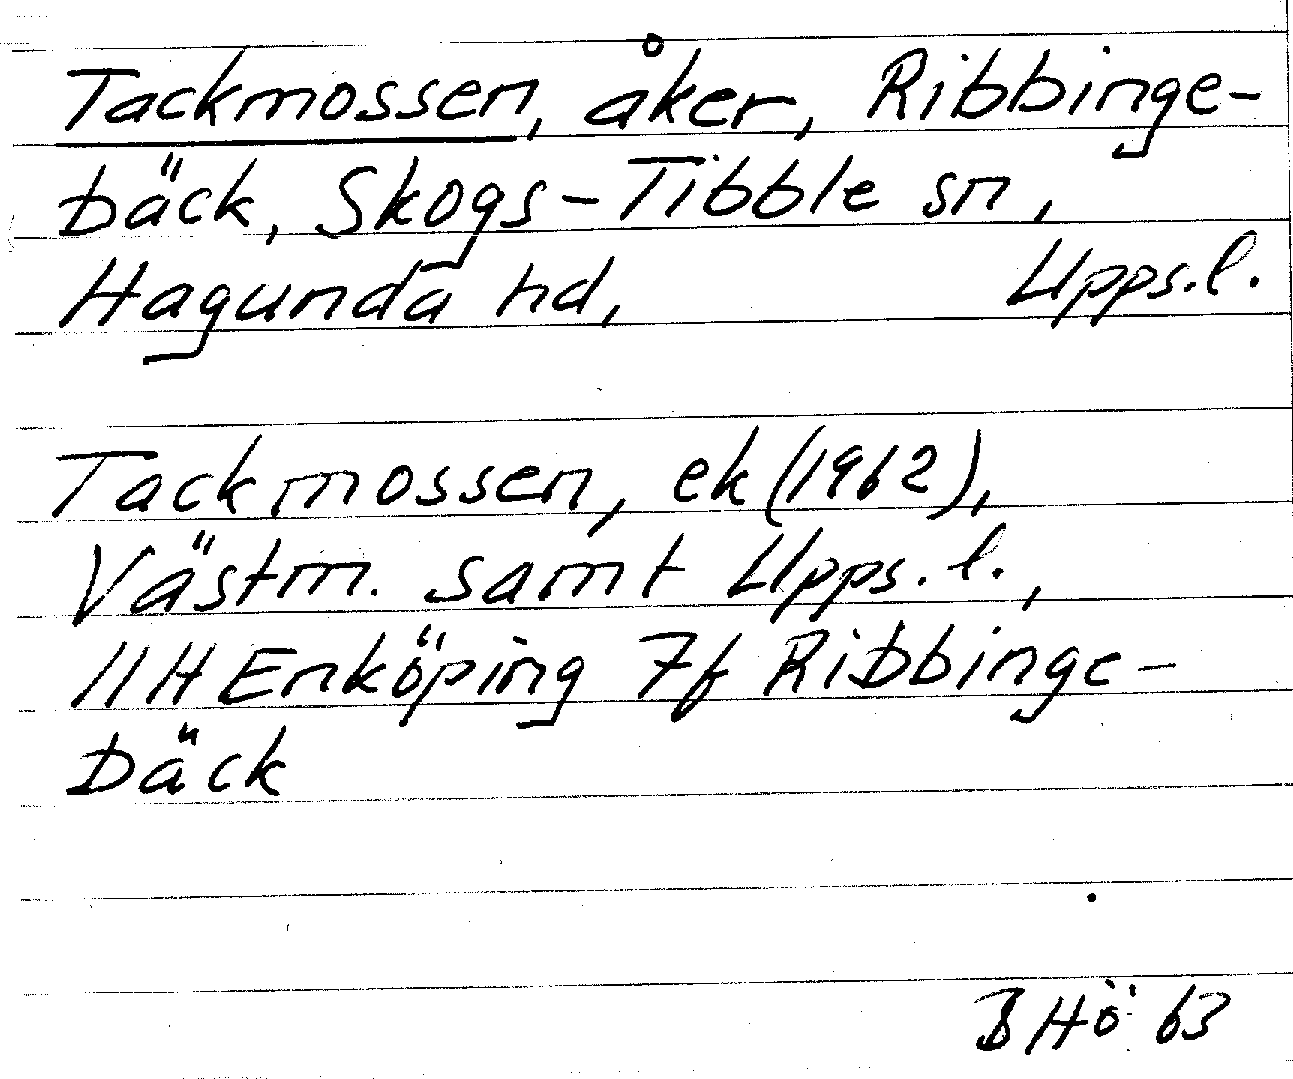 Tackmossen, åker, Ribbinge-
bäck, Skogs-Tibble sn,
Hagunda hd, Upps.l.
Tackmossen, ek (1962),
Västm. samt Upps.l.,
11H Enköping 7f Ribbinge-
bäck
B Hö 63